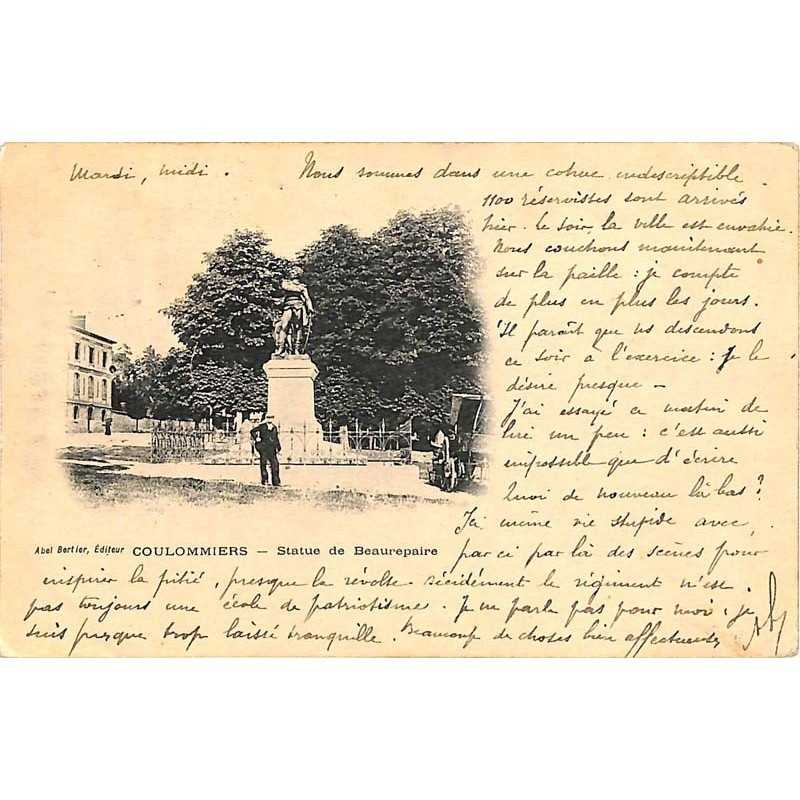 Mardi, midi. Nous sommes dans une cohue indescriptible.
1100 réservistes sont arrivés
hier. Le soir, la ville est envahie.
Nous couchons maintenant
sur la paille : je compte
de plus en plus les jours.
Il paraît que ns descendons
ce soir à l'exercice : je le
désire presque –
J'ai essayé ce matin de
lire un peu : c'est aussi
impossible que d'écrire
Quoi de nouveau là bas ?
Ici même vie stupide avec,
par ci par là des scènes pour
Abel Bertier, Éditeur COULOMMIERS — Statue de Beaurepaire
inspirer la pitié, presque la révolte. Décidément le régiment n'est
pas toujours une école de patriotisme. Je ne parle pas pour moi : je
suis presque trop laissé tranquille. Beaucoup de choses bien affectueuses